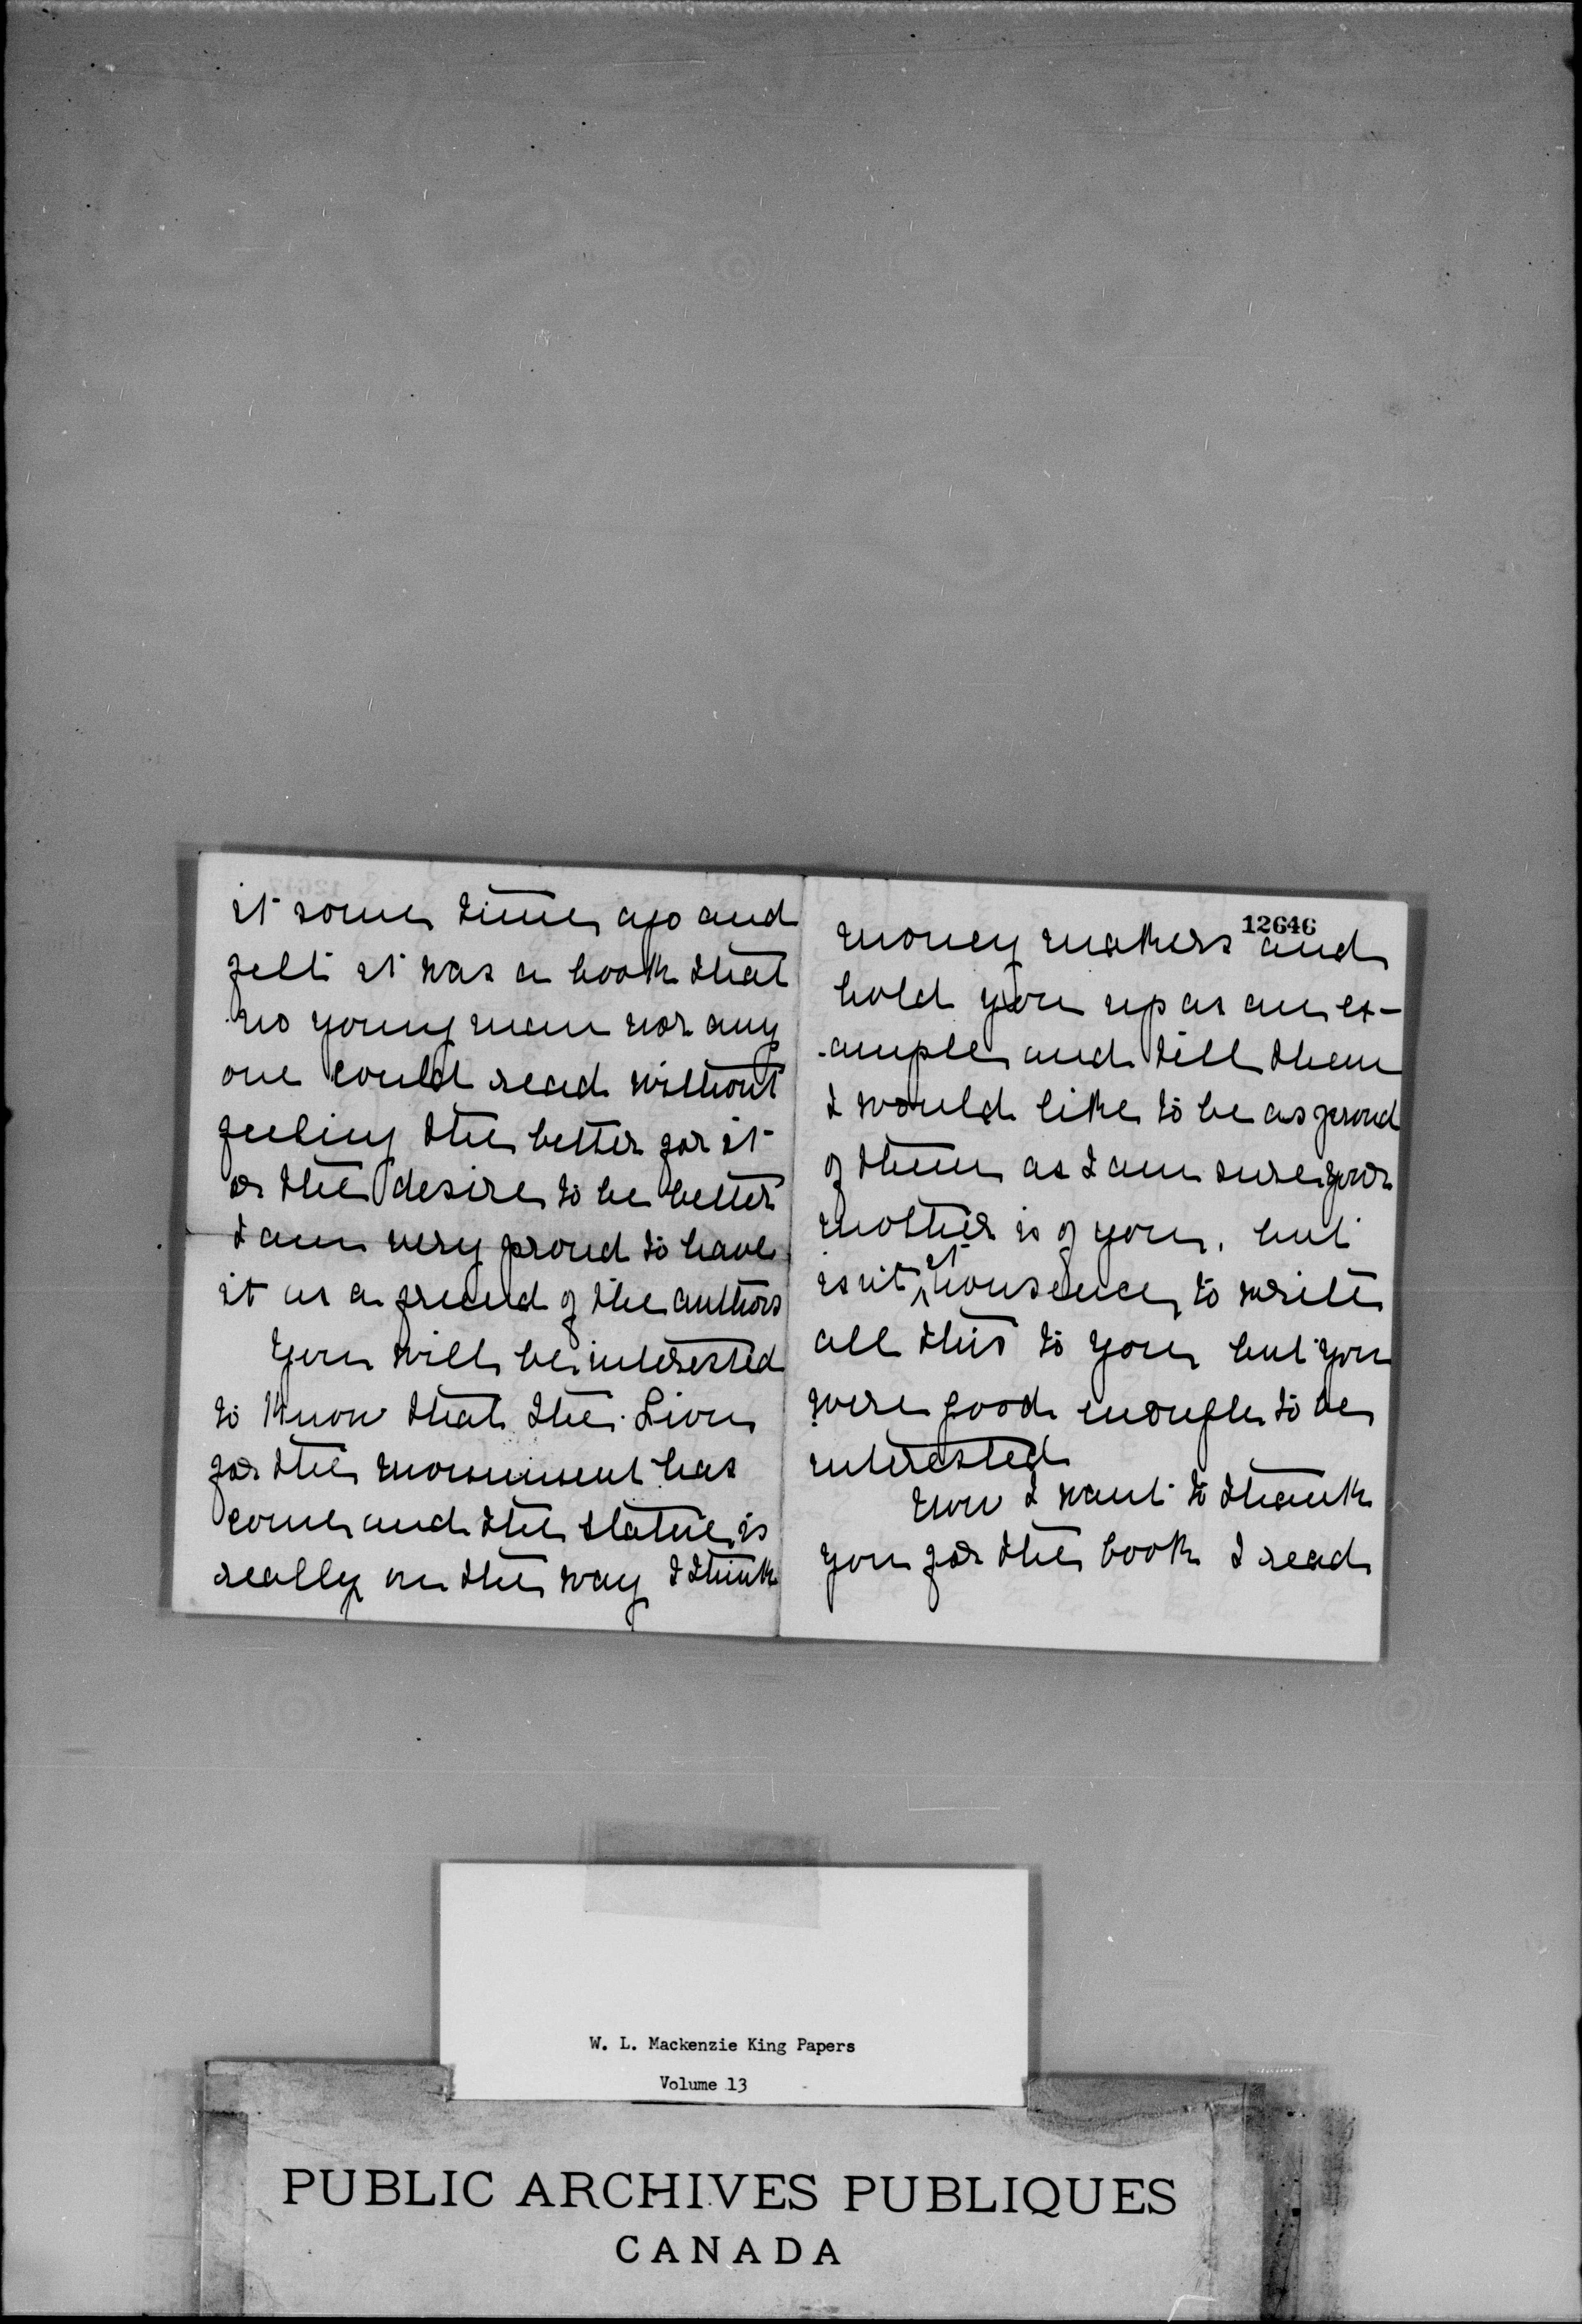 it some time ago and
felt it was a book that
no young man nor any
one could read without
feeling the better for it
or the desire to be better
I am very proud to have
it as a friend of the authors
You will be interested
to know that the Lion
for the monument has
come and the statue is
really on the way I think
12646
money makers and
hold you up as an ex-
-ample and tell them
I would like to be as proud
of them as I am sure your
mother is of you, but
isn't it nonsence to write
all this to you but you
were good enough to be
interested
Now I want to thank
you for the book I read
W. L. Mackenzie King Papers
Volume 13
PUBLIC ARCHIVES PUBLIQUES
CANADA